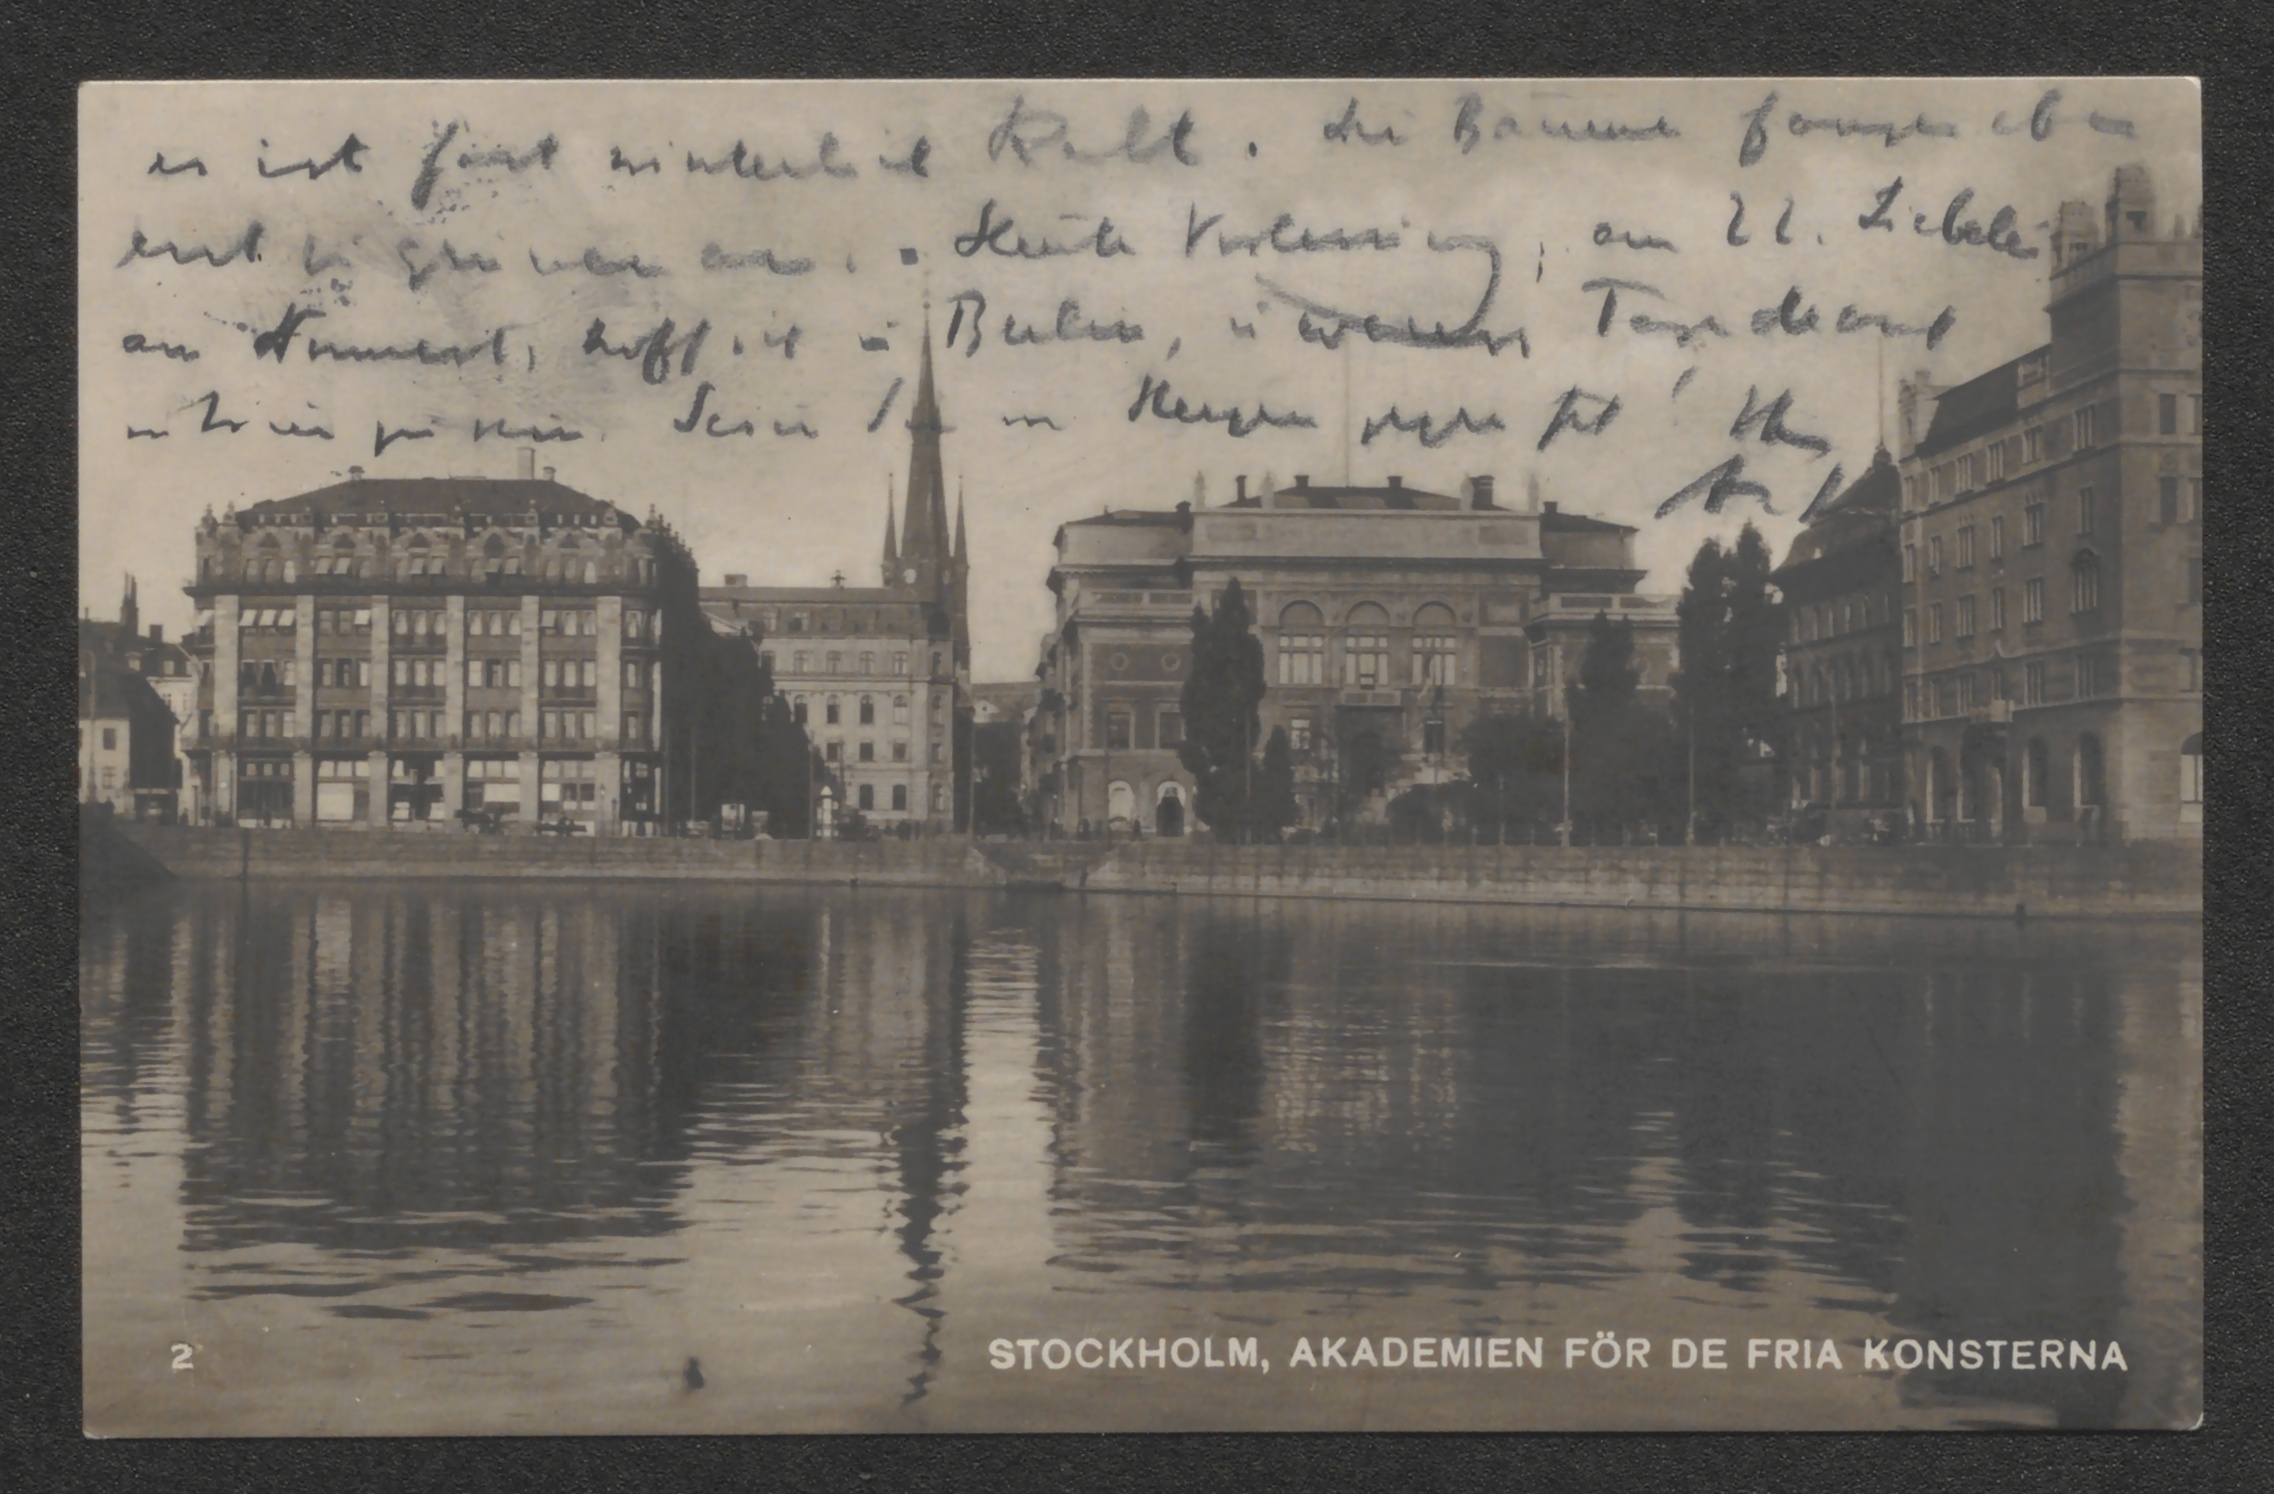 es ist fast winterlich kalt. die Bäume fangen eben
erst zu grünen an. - Heute Vorlesung, am 22. Liebelei
am hoff ich in Berlin, u Tage drauf
in Wien zu sein. Seien Sie von Herzen gegrüßt! Ihr
2
STOCKHOLM, AKADEMIEN FÖR DE FRIA KONSTERNA